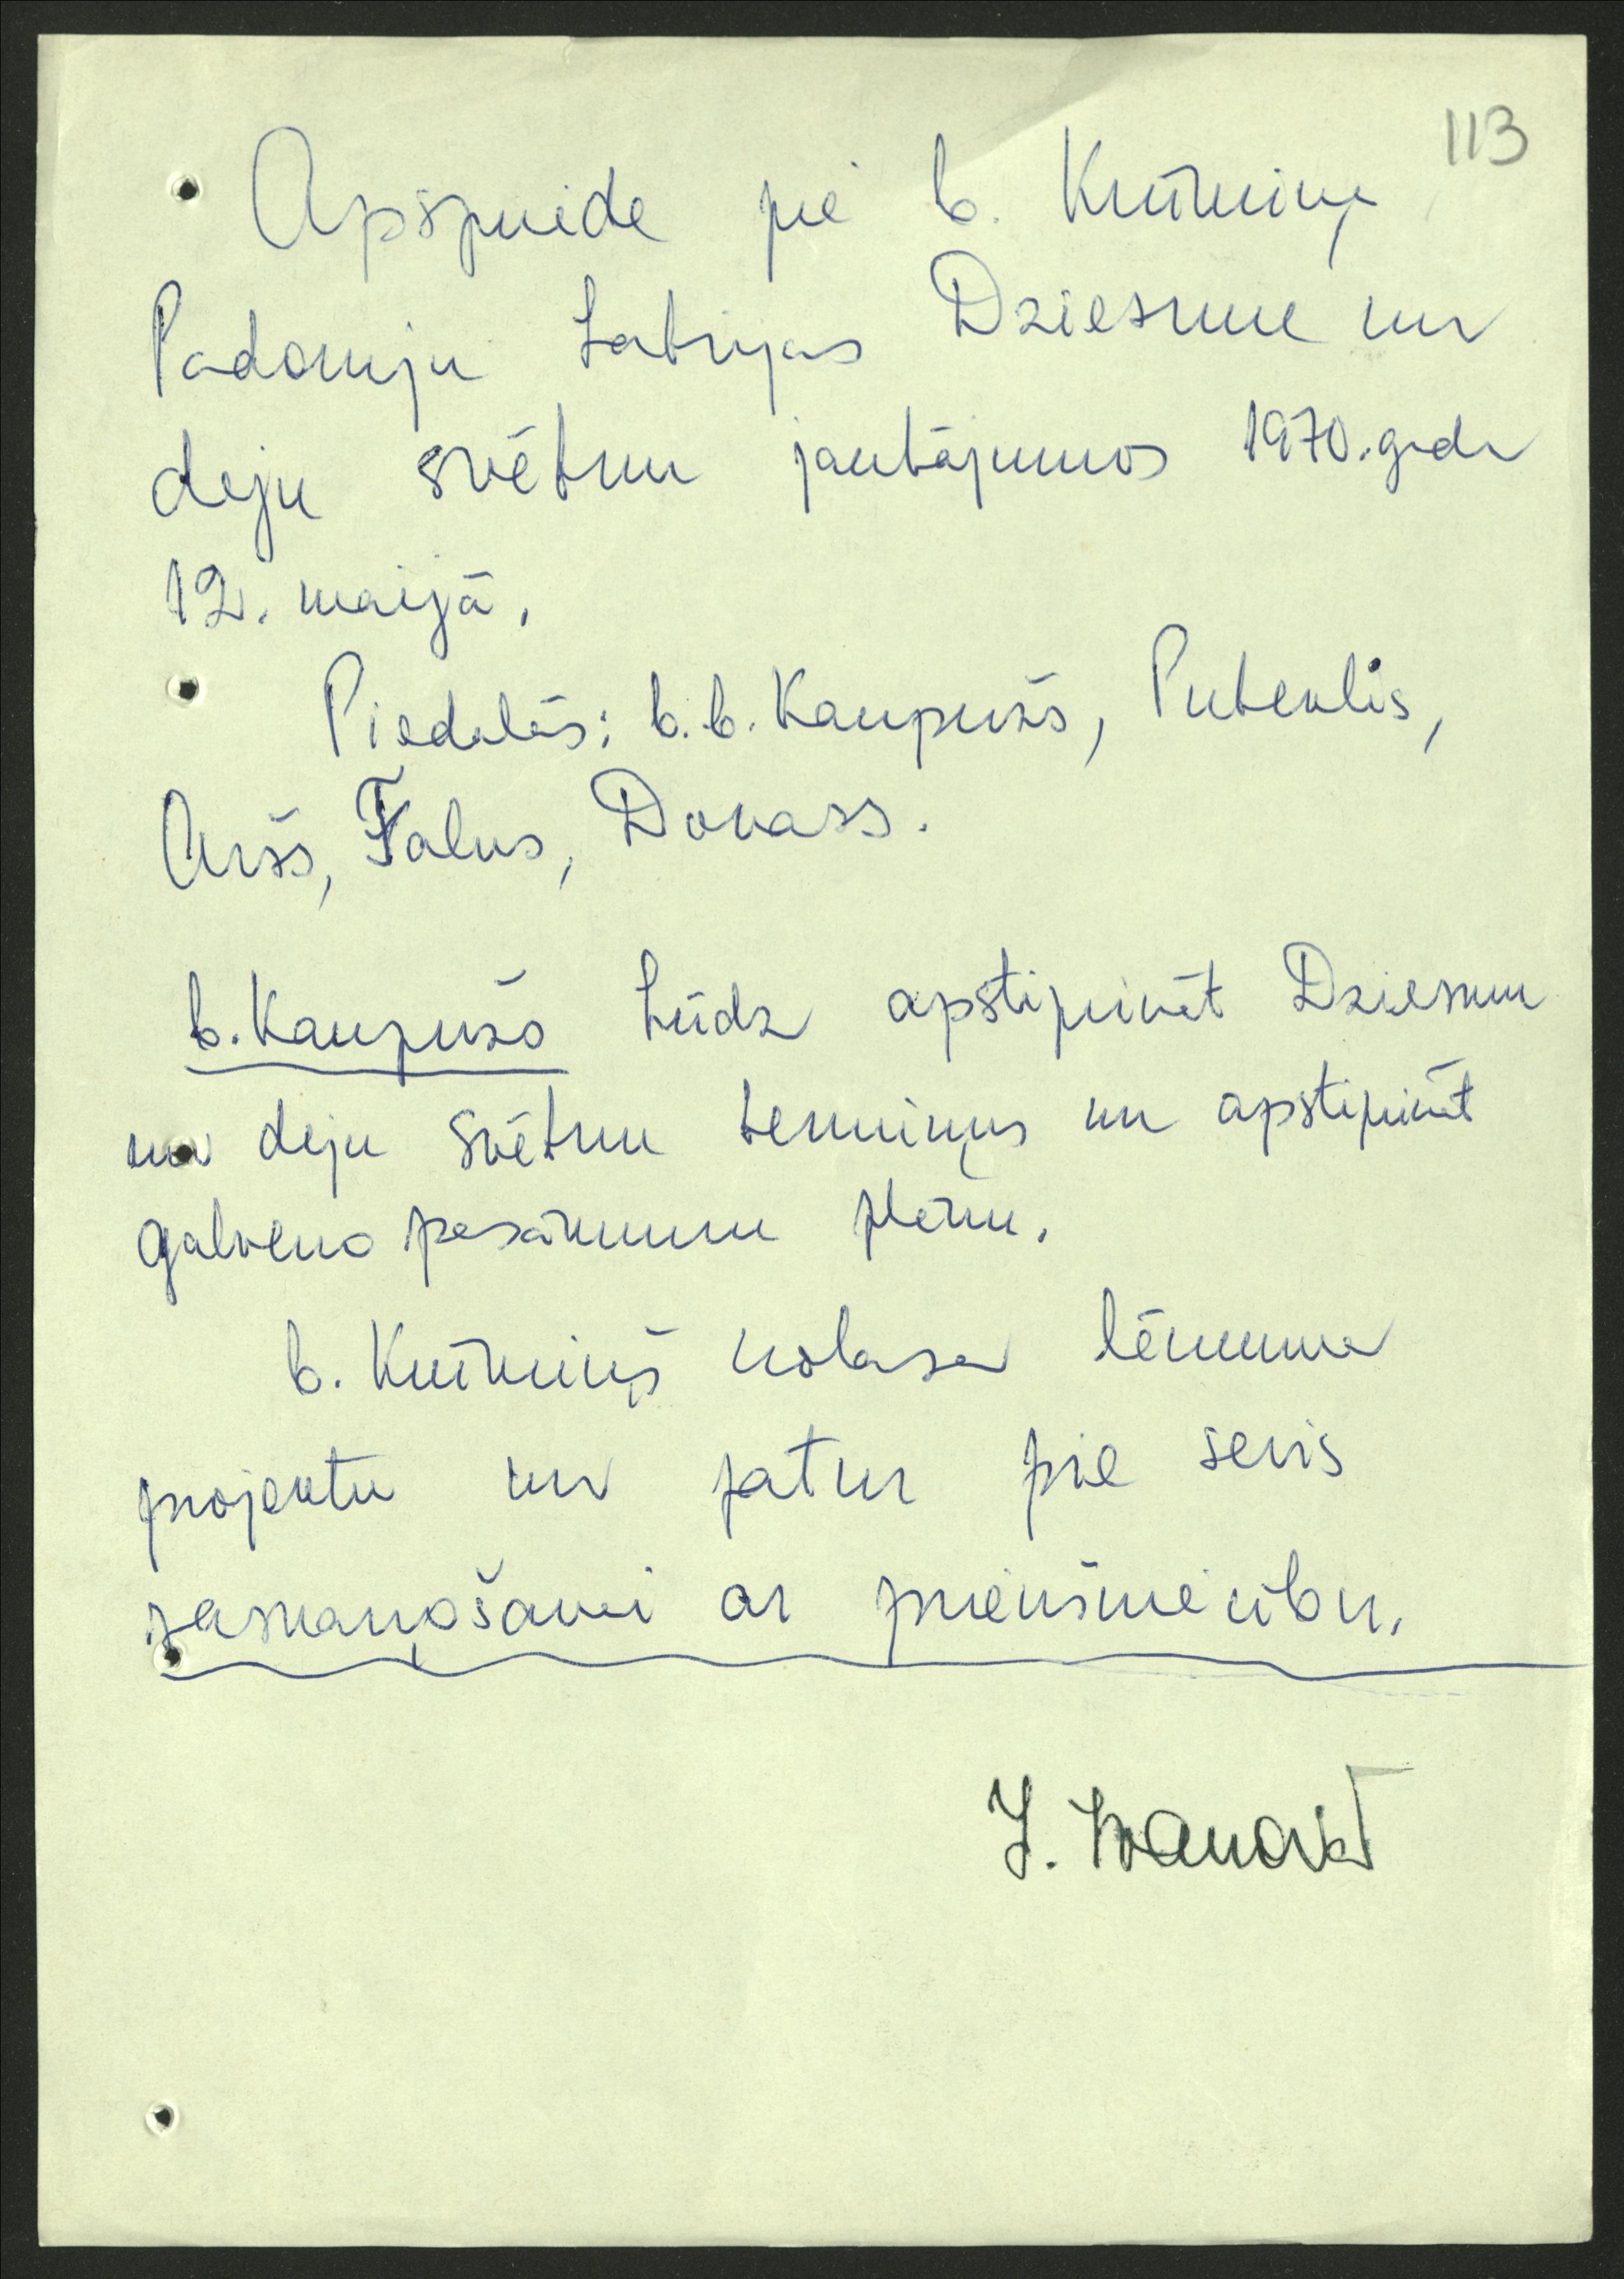 113
Apspriede pie b. Krūmiņa
Padomju Latvijas Dziesmu un
deju svētku jautājumos 1970. gada
12. maijā.
Piedalās: b.b. Kaupužs, Puteklis,
Aršs, Falks, Donass.
b. Kaupužs Lūdz apstiprināt Dziesmu
un deju svētku termiņus un apstiprināt
galveno pasākumu plānu.
b. Krūmiņš nolasa lēmuma
projektu un patur pie sevis
saskaņošanai ar priekšniecību.